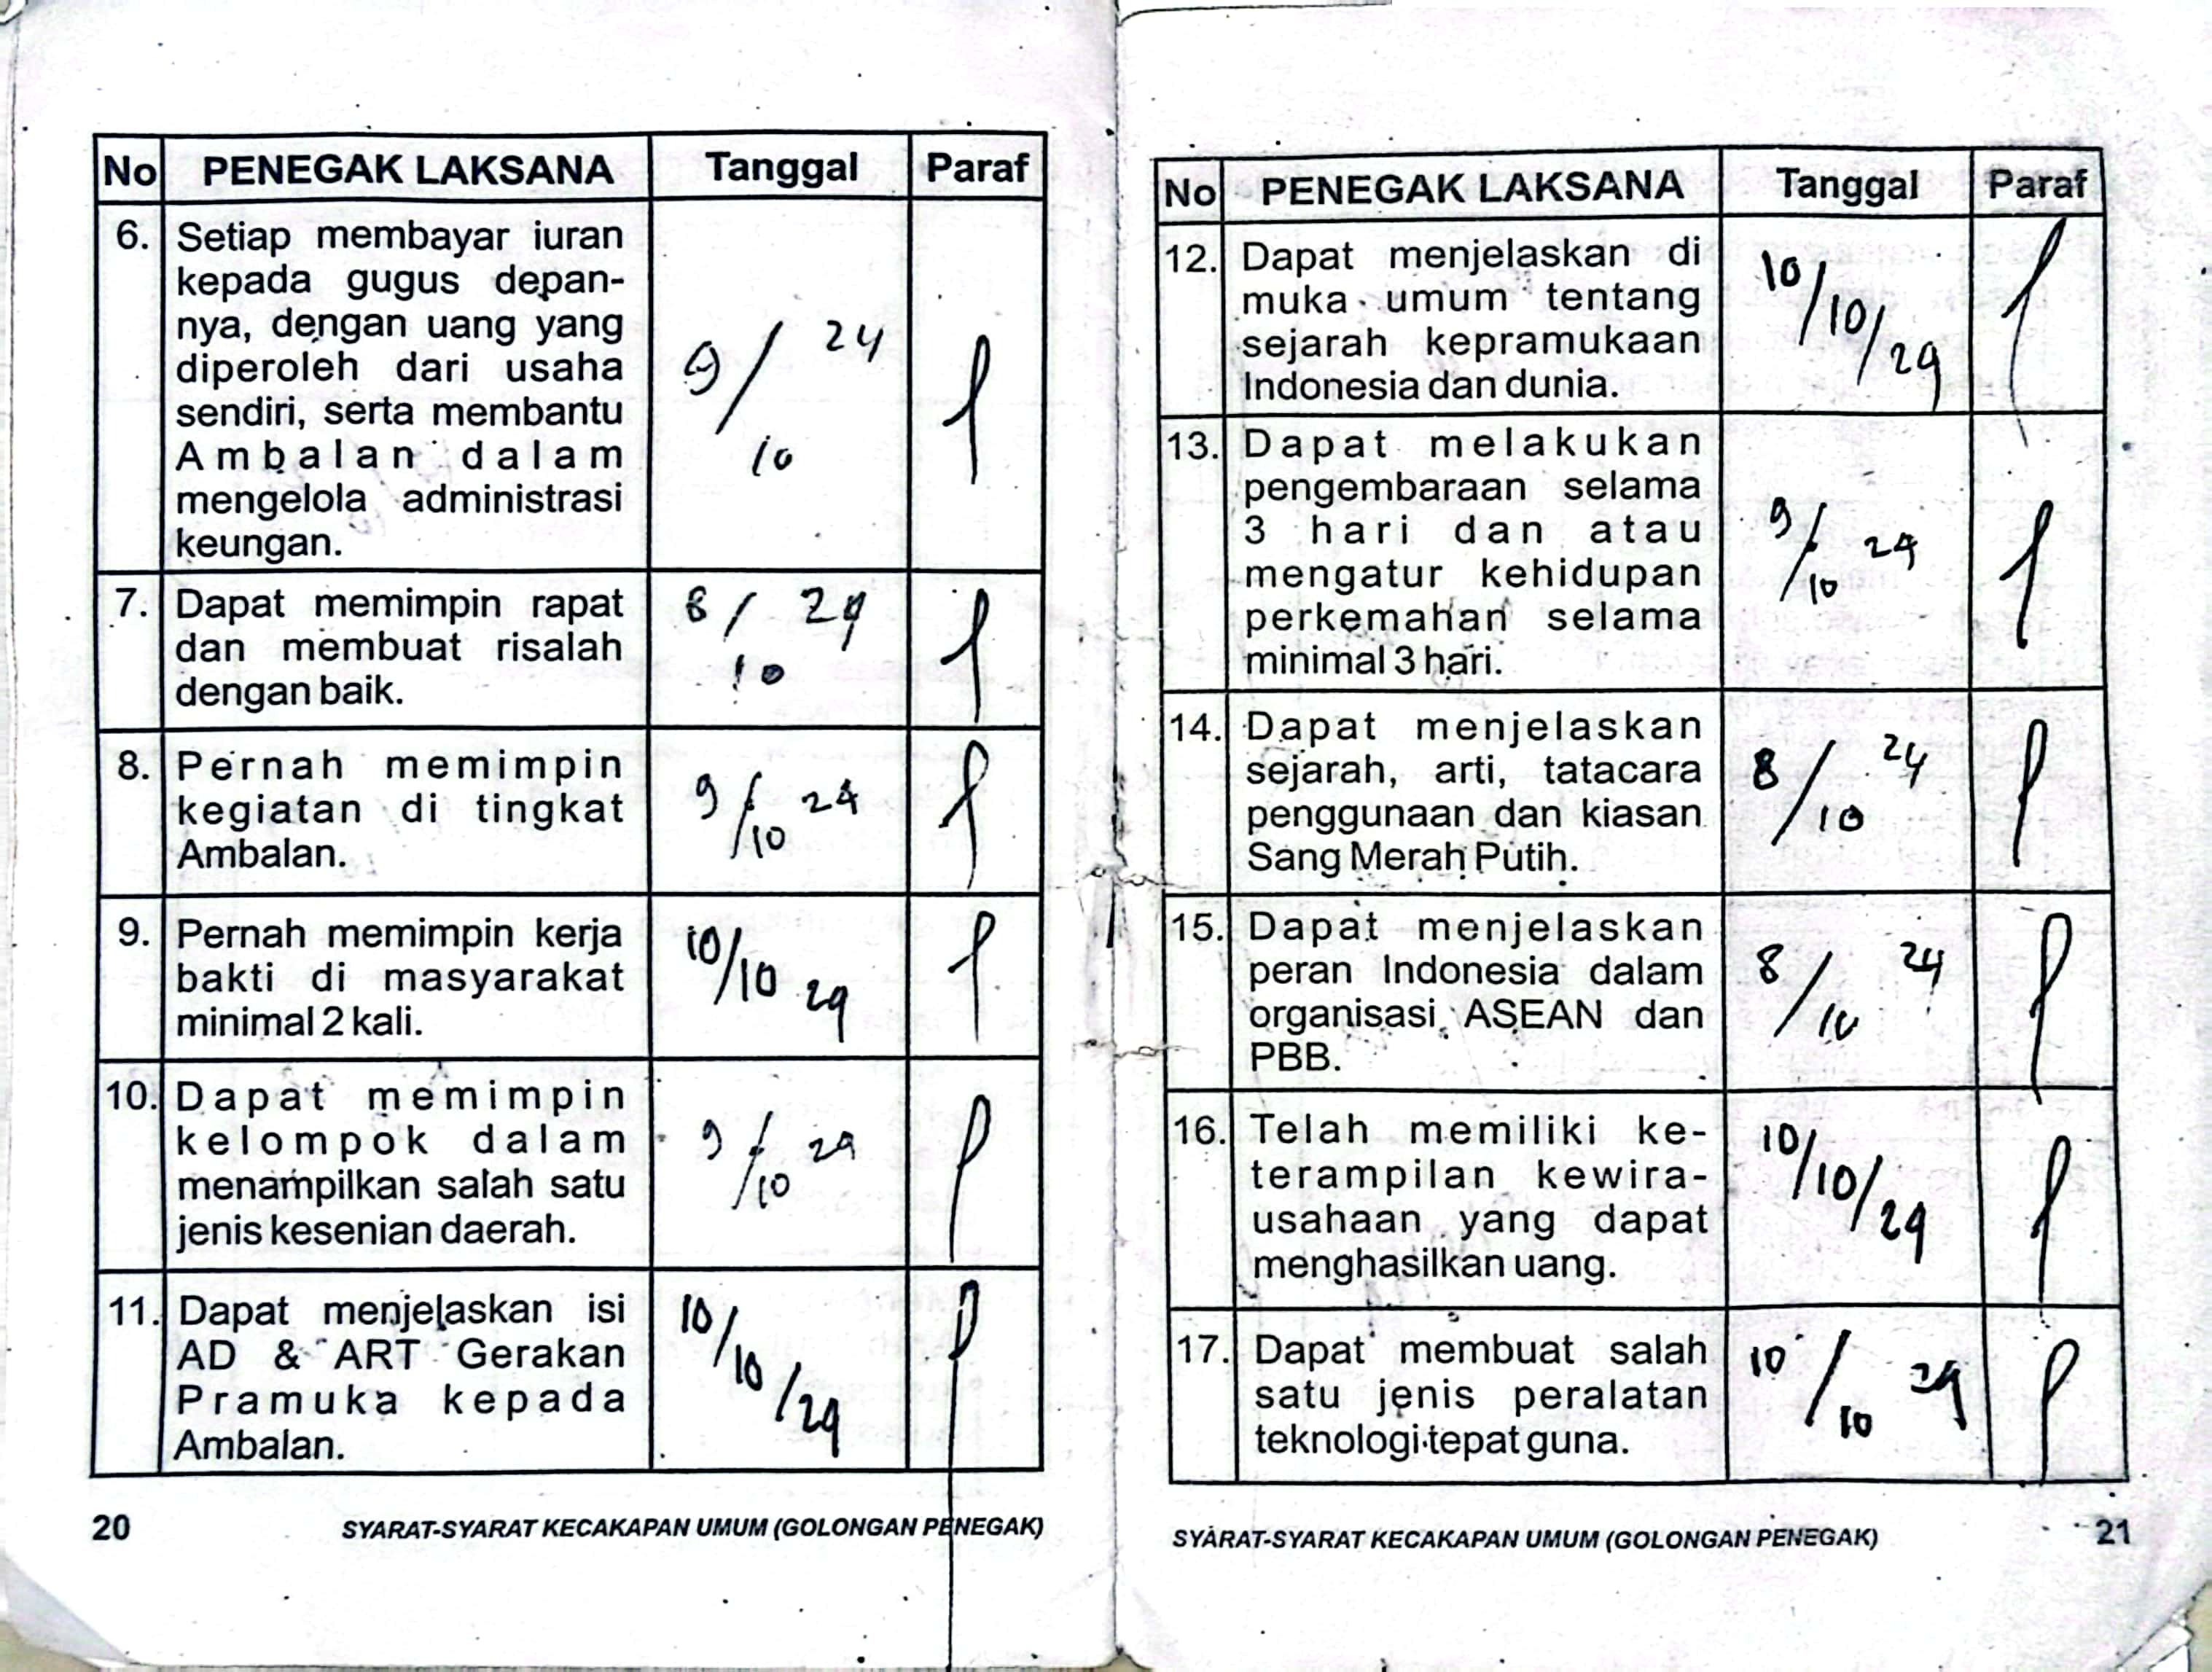 No PENEGAK LAKSANA Tanggal Paraf
6. Setiap membayar iuran
kepada gugus depan-
nya, dengan uang yang
diperoleh dari usaha
sendiri, serta membantu
Ambalan dalam
mengelola administrasi
keungan.
9/10 24
7. Dapat memimpin rapat
dan membuat risalah
dengan baik.
8/10 24
8. Pernah memimpin
kegiatan di tingkat
Ambalan.
9/10 24
9. Pernah memimpin kerja
bakti di masyarakat
minimal 2 kali.
10/10 24
10. Dapat memimpin
kelompok dalam
menampilkan salah satu
jenis kesenian daerah.
9/10 24
11. Dapat menjelaskan isi
AD & ART Gerakan
Pramuka kepada
Ambalan.
10/10/24
20 SYARAT-SYARAT KECAKAPAN UMUM (GOLONGAN PENEGAK)
No PENEGAK LAKSANA Tanggal Paraf
12. Dapat menjelaskan di
muka umum tentang
sejarah kepramukaan
Indonesia dan dunia.
10/10/24
13. Dapat melakukan
pengembaraan selama
3 hari dan atau
mengatur kehidupan
perkemahan selama
minimal 3 hari.
9/10 24
14. Dapat menjelaskan
sejarah, arti, tatacara
penggunaan dan kiasan
Sang Merah Putih.
8/10 24
15. Dapat menjelaskan
peran Indonesia dalam
organisasi ASEAN dan
PBB.
8/10 24
16. Telah memiliki ke-
terampilan kewira-
usahaan yang dapat
menghasilkan uang.
10/10/24
17. Dapat membuat salah
satu jenis peralatan
teknologi tepat guna.
10/10 24
SYARAT-SYARAT KECAKAPAN UMUM (GOLONGAN PENEGAK) 21